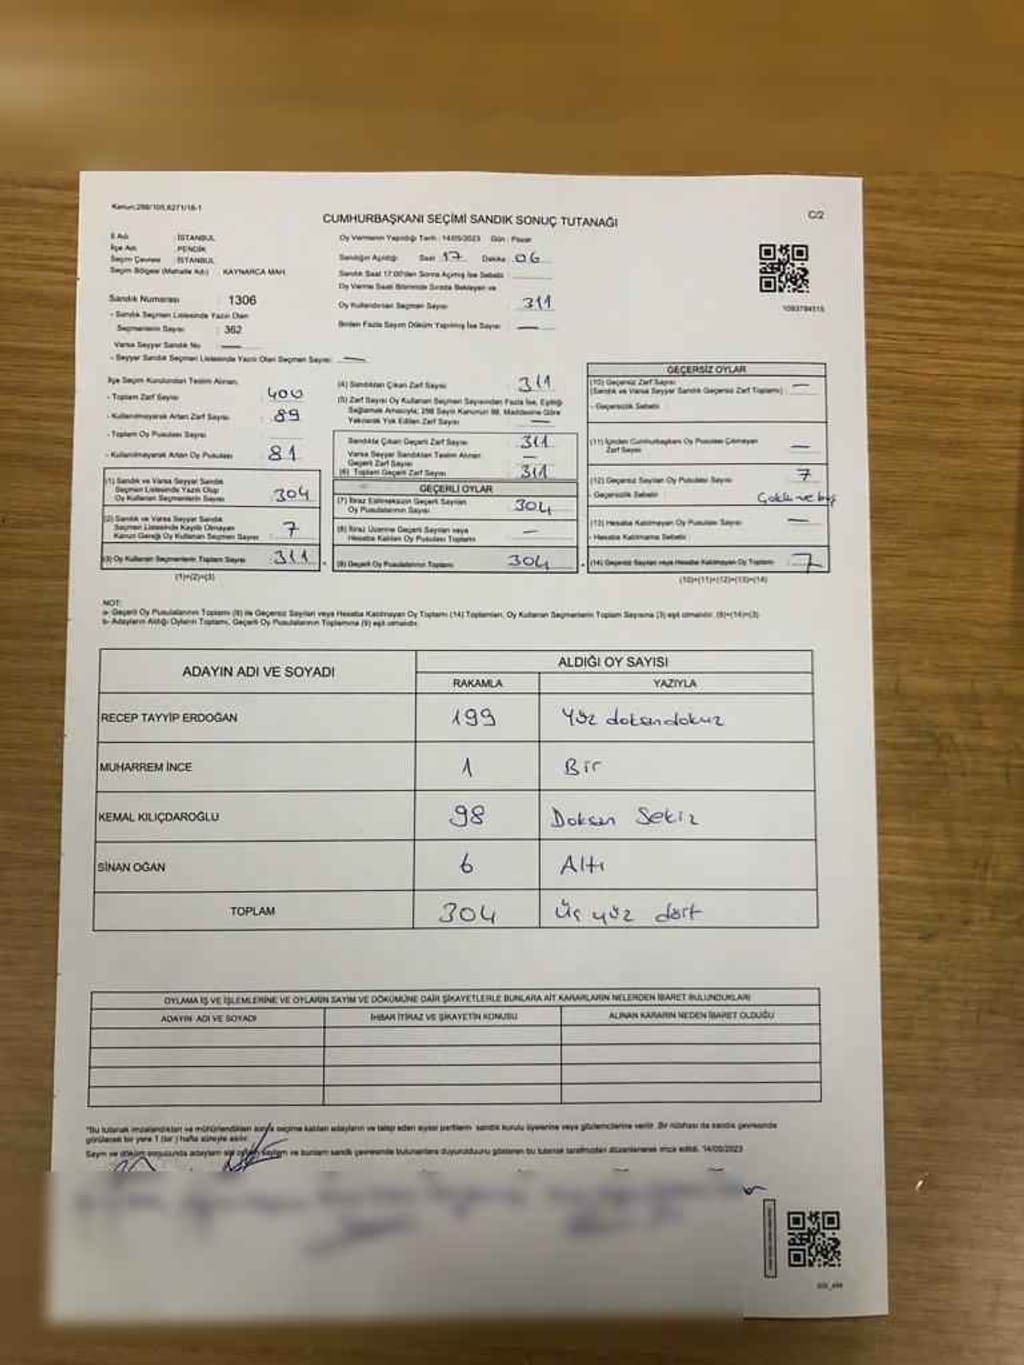 Kanun:298/105,6271/18-1
CUMHURBAŞKANI SEÇİMİ SANDIK SONUÇ TUTANAĞI
C/2
İl Adı : İSTANBUL
İlçe Adı : PENDİK
Seçim Çevresi : İSTANBUL
Seçim Bölgesi (Mahalle Adı) : KAYNARCA MAH.
Sandık Numarası : 1306
- Sandık Seçmen Listesinde Yazılı Olan
Seçmenlerin Sayısı : 362
Varsa Seyyar Sandık No : —
- Seyyar Sandık Seçmen Listesinde Yazılı Olan Seçmen Sayısı : —
Oy Vermenin Yapıldığı Tarih : 14/05/2023 Gün : Pazar
Sandığın Açıldığı Saat 17 Dakika 06
Sandık Saat 17:00'den Sonra Açılmış İse Sebebi :
Oy Verme Saati Bitiminde Sırada Bekleyen ve
Oy Kullandırılan Seçmen Sayısı : 311
Birden Fazla Sayım Döküm Yapılmış İse Sayısı : —
1093784515
İlçe Seçim Kurulundan Teslim Alınan;
- Toplam Zarf Sayısı : 400
- Kullanılmayarak Artan Zarf Sayısı : 89
- Toplam Oy Pusulası Sayısı :
- Kullanılmayarak Artan Oy Pusulası : 81
(1) Sandık ve Varsa Seyyar Sandık
Seçmen Listesinde Yazılı Olup
Oy Kullanan Seçmenlerin Sayısı : 304
(2) Sandık ve Varsa Seyyar Sandık
Seçmen Listesinde Kaydı Olmayan
Kanun Gereği Oy Kullanan Seçmen Sayısı : 7
(3) Oy Kullanan Seçmenlerin Toplam Sayısı : 311
(1)+(2)=(3)
(4) Sandıktan Çıkan Zarf Sayısı : 311
(5) Zarf Sayısı Oy Kullanan Seçmen Sayısından Fazla İse, Eşitliği
Sağlamak Amacıyla; 298 Sayılı Kanunun 98. Maddesine Göre
Yakılarak Yok Edilen Zarf Sayısı : —
Sandıkta Çıkan Geçerli Zarf Sayısı : 311
Varsa Seyyar Sandıktan Teslim Alınan
Geçerli Zarf Sayısı : —
(6) Toplam Geçerli Zarf Sayısı : 311
GEÇERLİ OYLAR
(7) İtiraz Edilmeksizin Geçerli Sayılan
Oy Pusulalarının Sayısı : 304
(8) İtiraz Üzerine Geçerli Sayılan veya
Hesaba Katılan Oy Pusulası Toplamı : —
(9) Geçerli Oy Pusulalarının Toplamı : 304
GEÇERSİZ OYLAR
(10) Geçersiz Zarf Sayısı
(Sandık ve Varsa Seyyar Sandık Geçersiz Zarf Toplamı) : —
- Geçersizlik Sebebi :
(11) İçinden Cumhurbaşkanı Oy Pusulası Çıkmayan
Zarf Sayısı : —
(12) Geçersiz Sayılan Oy Pusulası Sayısı : 7
- Geçersizlik Sebebi :
(13) Hesaba Katılmayan Oy Pusulası Sayısı : —
- Hesaba Katılmama Sebebi :
(14) Geçersiz Sayılan veya Hesaba Katılmayan Oy Toplamı : 7
(10)+(11)+(12)+(13)=(14)
NOT:
a- Geçerli Oy Pusulalarının Toplamı (9) ile Geçersiz Sayılan veya Hesaba Katılmayan Oy Toplamı (14) Toplamları, Oy Kullanan Seçmenlerin Toplam Sayısına (3) eşit olmalıdır. (9)+(14)=(3)
b- Adayların Aldığı Oyların Toplamı, Geçerli Oy Pusulalarının Toplamına (9) eşit olmalıdır.
ADAYIN ADI VE SOYADI
ALDIĞI OY SAYISI
RAKAMLA YAZIYLA
RECEP TAYYİP ERDOĞAN 199 Yüz doksandokuz
MUHARREM İNCE 1 Bir
KEMAL KILIÇDAROĞLU 98 Doksan Sekiz
SİNAN OĞAN 6 Altı
TOPLAM 304 Üç yüz dört
OYLAMA İŞ VE İŞLEMLERİNE VE OYLARIN SAYIM VE DÖKÜMÜNE DAİR ŞİKAYETLERLE BUNLARA AİT KARARLARIN NELERDEN İBARET BULUNDUKLARI
ADAYIN ADI VE SOYADI İHBAR İTİRAZ VE ŞİKAYETİN KONUSU ALINAN KARARIN NEDEN İBARET OLDUĞU
*Bu tutanak imzalandıktan ve mühürlendikten sonra seçime katılan adayların ve talep eden siyasi partilerin sandık kurulu üyelerine veya gözlemcilerine verilir. Bir nüshası da sandık çevresinde
görülecek bir yere 1 (bir) hafta süreyle asılır.
Sayım ve döküm sonucunda adayların oyları ve bunların sandık çevresinde bulunanlara duyurulduğunu gösteren bu tutanak tarafımızdan düzenlenerek imza edildi. 14/05/2023